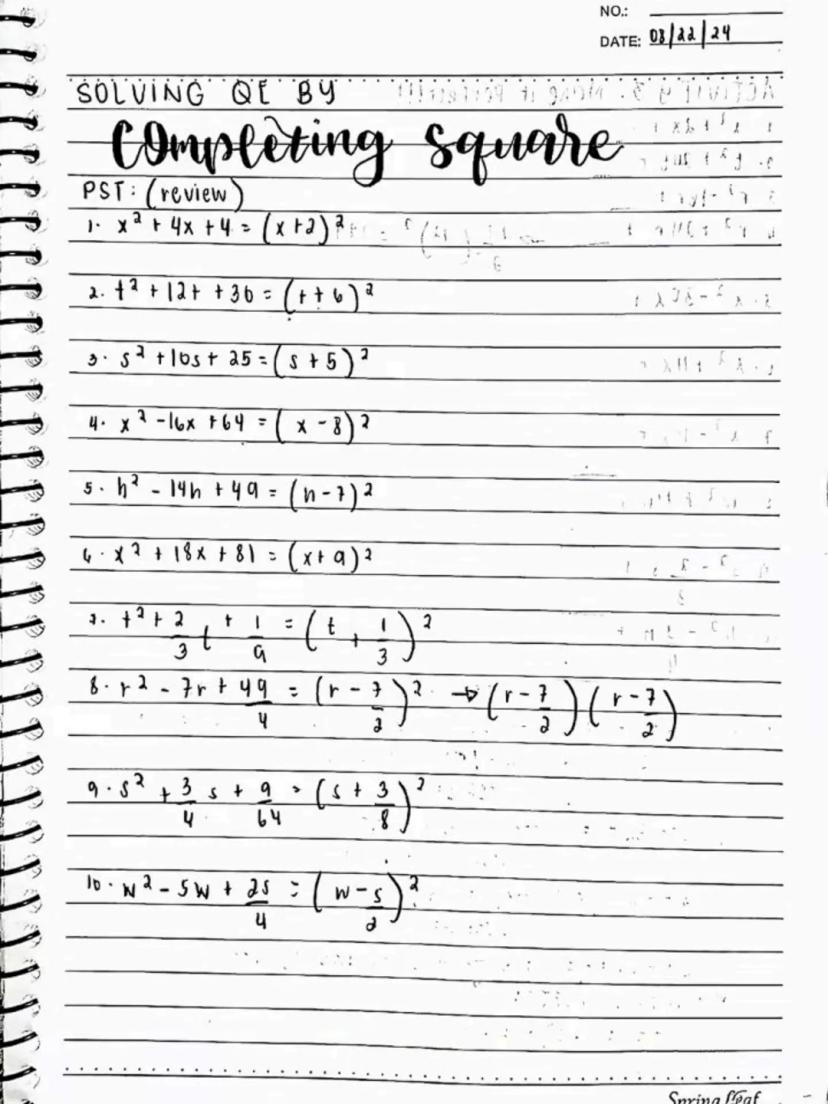 NO.:
DATE: 03/22/24
SOLVING QE BY
Completing Square
PST: (review)
1. x² + 4x + 4 = (x+2)²
2. t² + 12t + 36 = (t + 6)²
3. s² + 10s + 25 = (s + 5)²
4. x² - 16x + 64 = (x - 8)²
5. h² - 14h + 49 = (h - 7)²
6. x² + 18x + 81 = (x + 9)²
7. t² + 2/3 t + 1/9 = (t + 1/3)²
8. r² - 7r + 49/4 = (r - 7/2)² → (r - 7/2)(r - 7/2)
9. s² + 3/4 s + 9/64 = (s + 3/8)²
10. w² - 5w + 25/4 = (w - 5/2)²
Spring Leaf